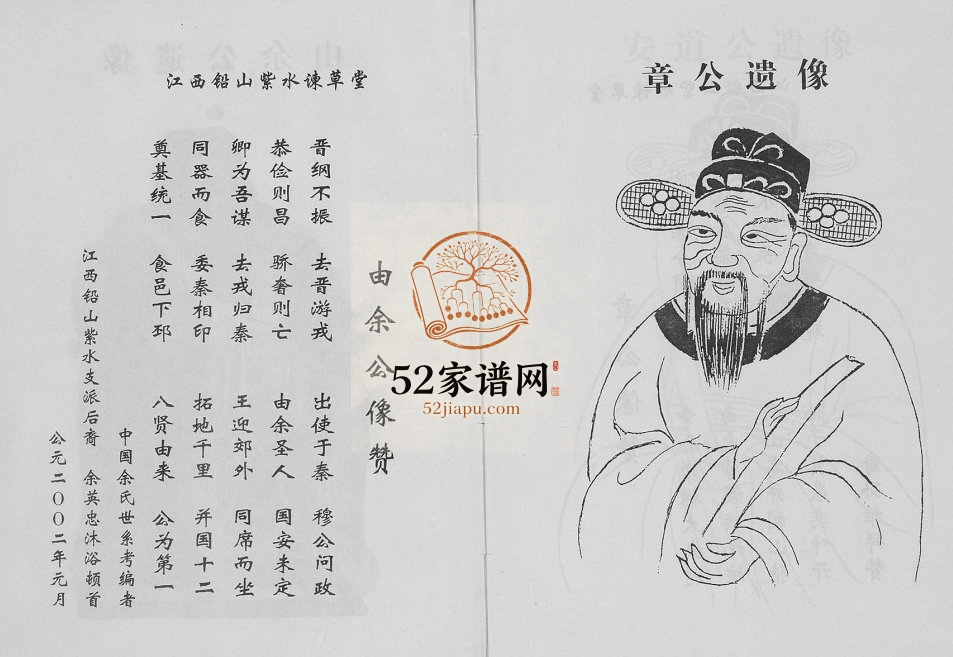 章公遗像
江西铅山紫水谏草堂
由余公像赞
晋纲不振 去晋游戎 出使于秦 穆公问政
恭俭则昌 骄奢则亡 由余圣人 国安未定
卿为吾谋 去戎归秦 王迎郊外 同席而坐
同器而食 委秦相印 拓地千里 并国十二
奠基统一 食邑下邳 八贤由来 公为第一
中国余氏世系考编者
江西铅山紫水支派后裔 余英忠沐浴顿首
公元二〇〇二年元月
52家谱网
52jiapu.com